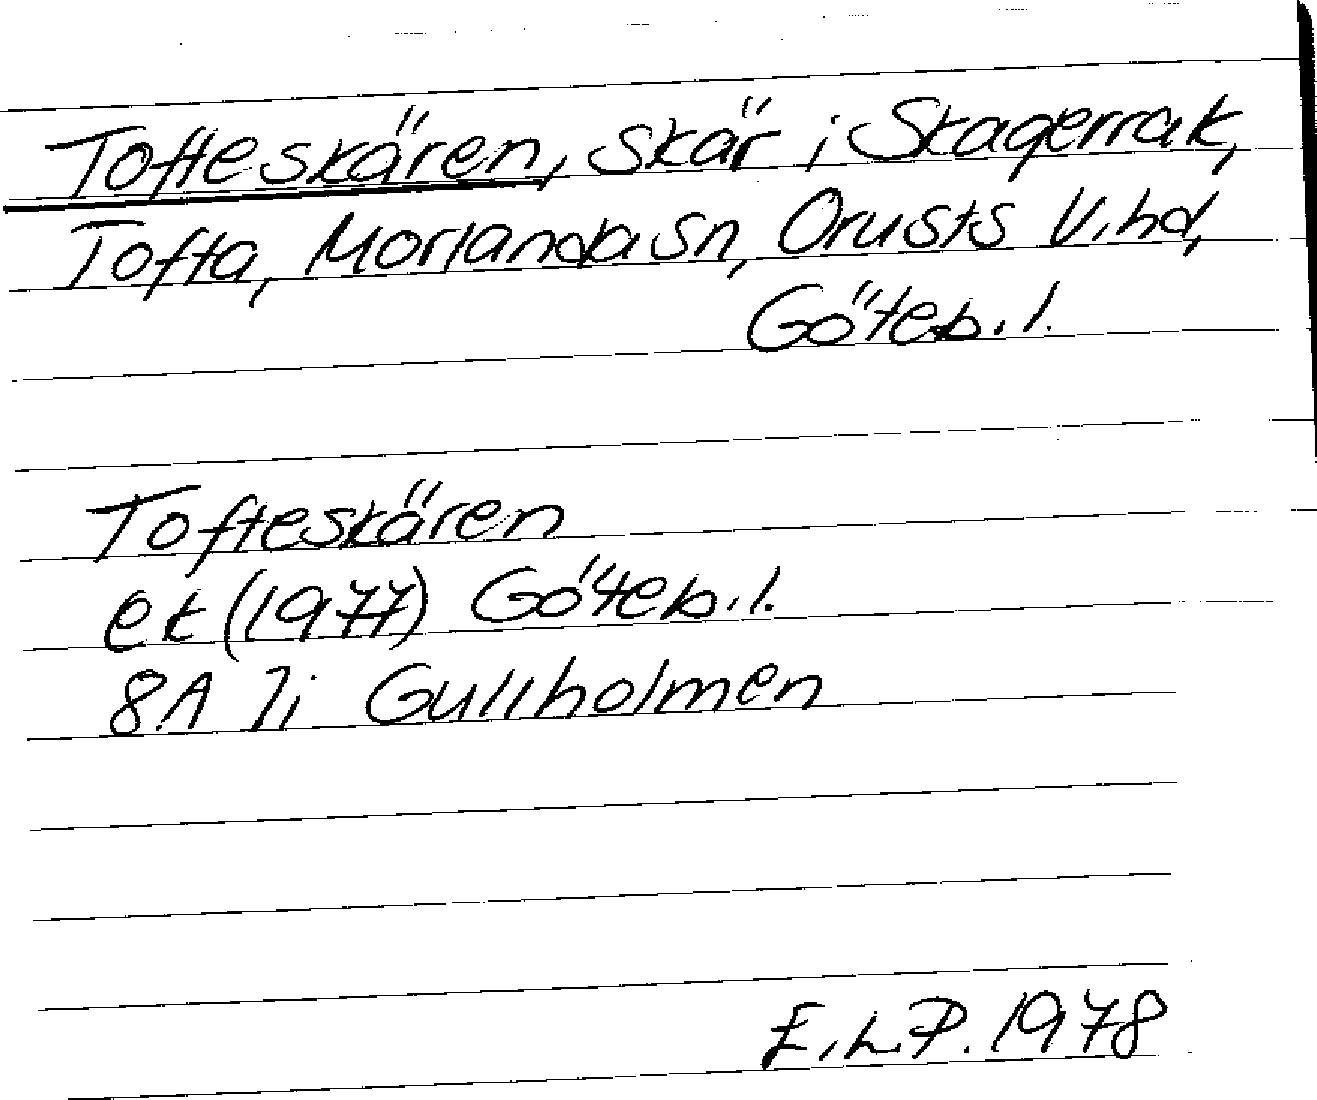 Tofteskären, skär i Skagerrak,
Tofta, Morlanda sn, Orusts v. hd,
Göteb. l.
Tofteskären
ek (1977) Göteb. l.
8A 7i Gullholmen
E. L. P. 1978